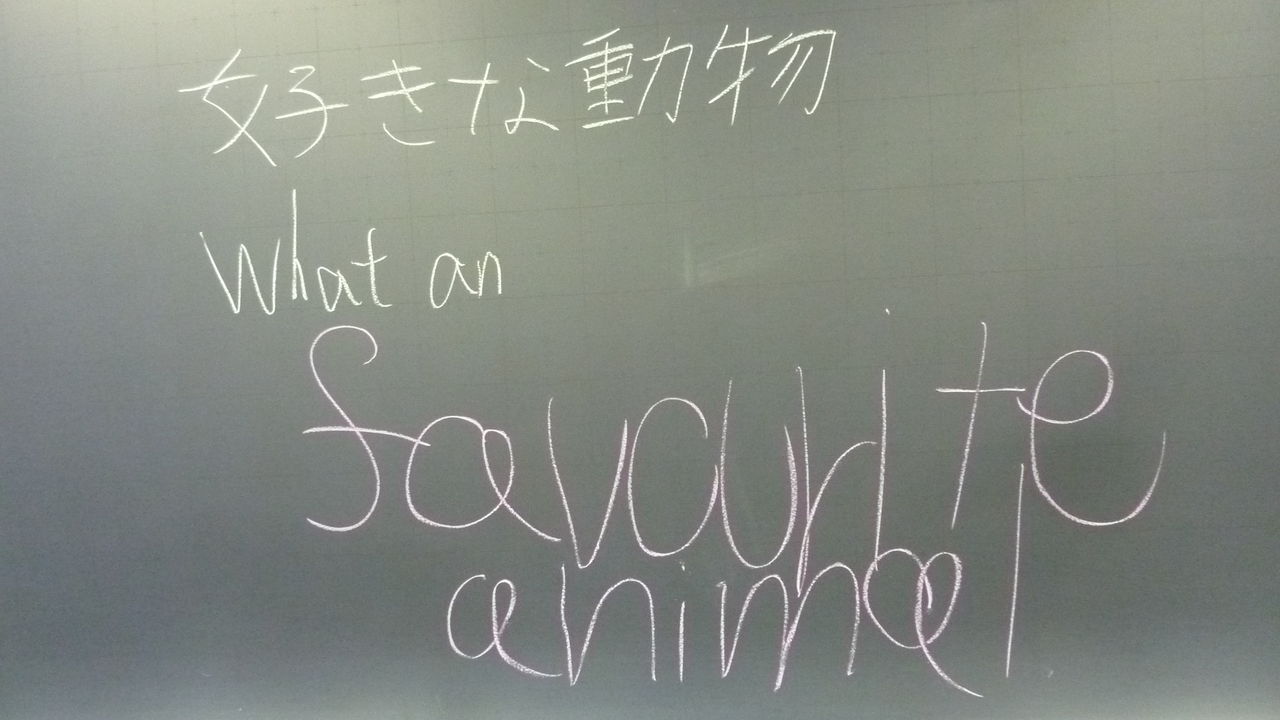 好きな動物
What an
favourite
animal